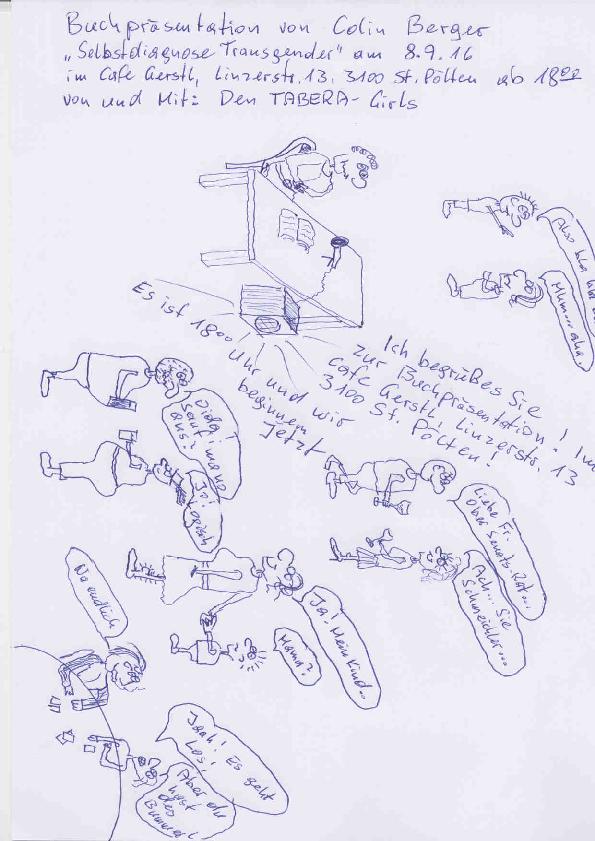 Buchpräsentation von Colin Berger
„Selbstdiagnose Transgender" am 8.9.16
im Cafe Gerstl, Linzerstr. 13, 3100 St. Pölten ab 18⁰⁰
von und Mit: Den TABERA-Girls
Also bla bla
Mhm... aha.
Es ist 18⁰⁰
Uhr und wir
beginnen
Jetzt
Ich begrüße Sie
zur Buchpräsentation! Im
Cafe Gerstl, Linzerstr. 13
3100 St. Pölten!
Oida!
sauf' ma no
ans?
Jo!
Logisch
Liebe Fr.
Ober Senats-Rat...
Ach... Sie
Schmeichler...
Na endlich
Ja! Mein Kind...
Mama?
Jaah! Es geht
Los!
Aber du
hast
des
Bummerl